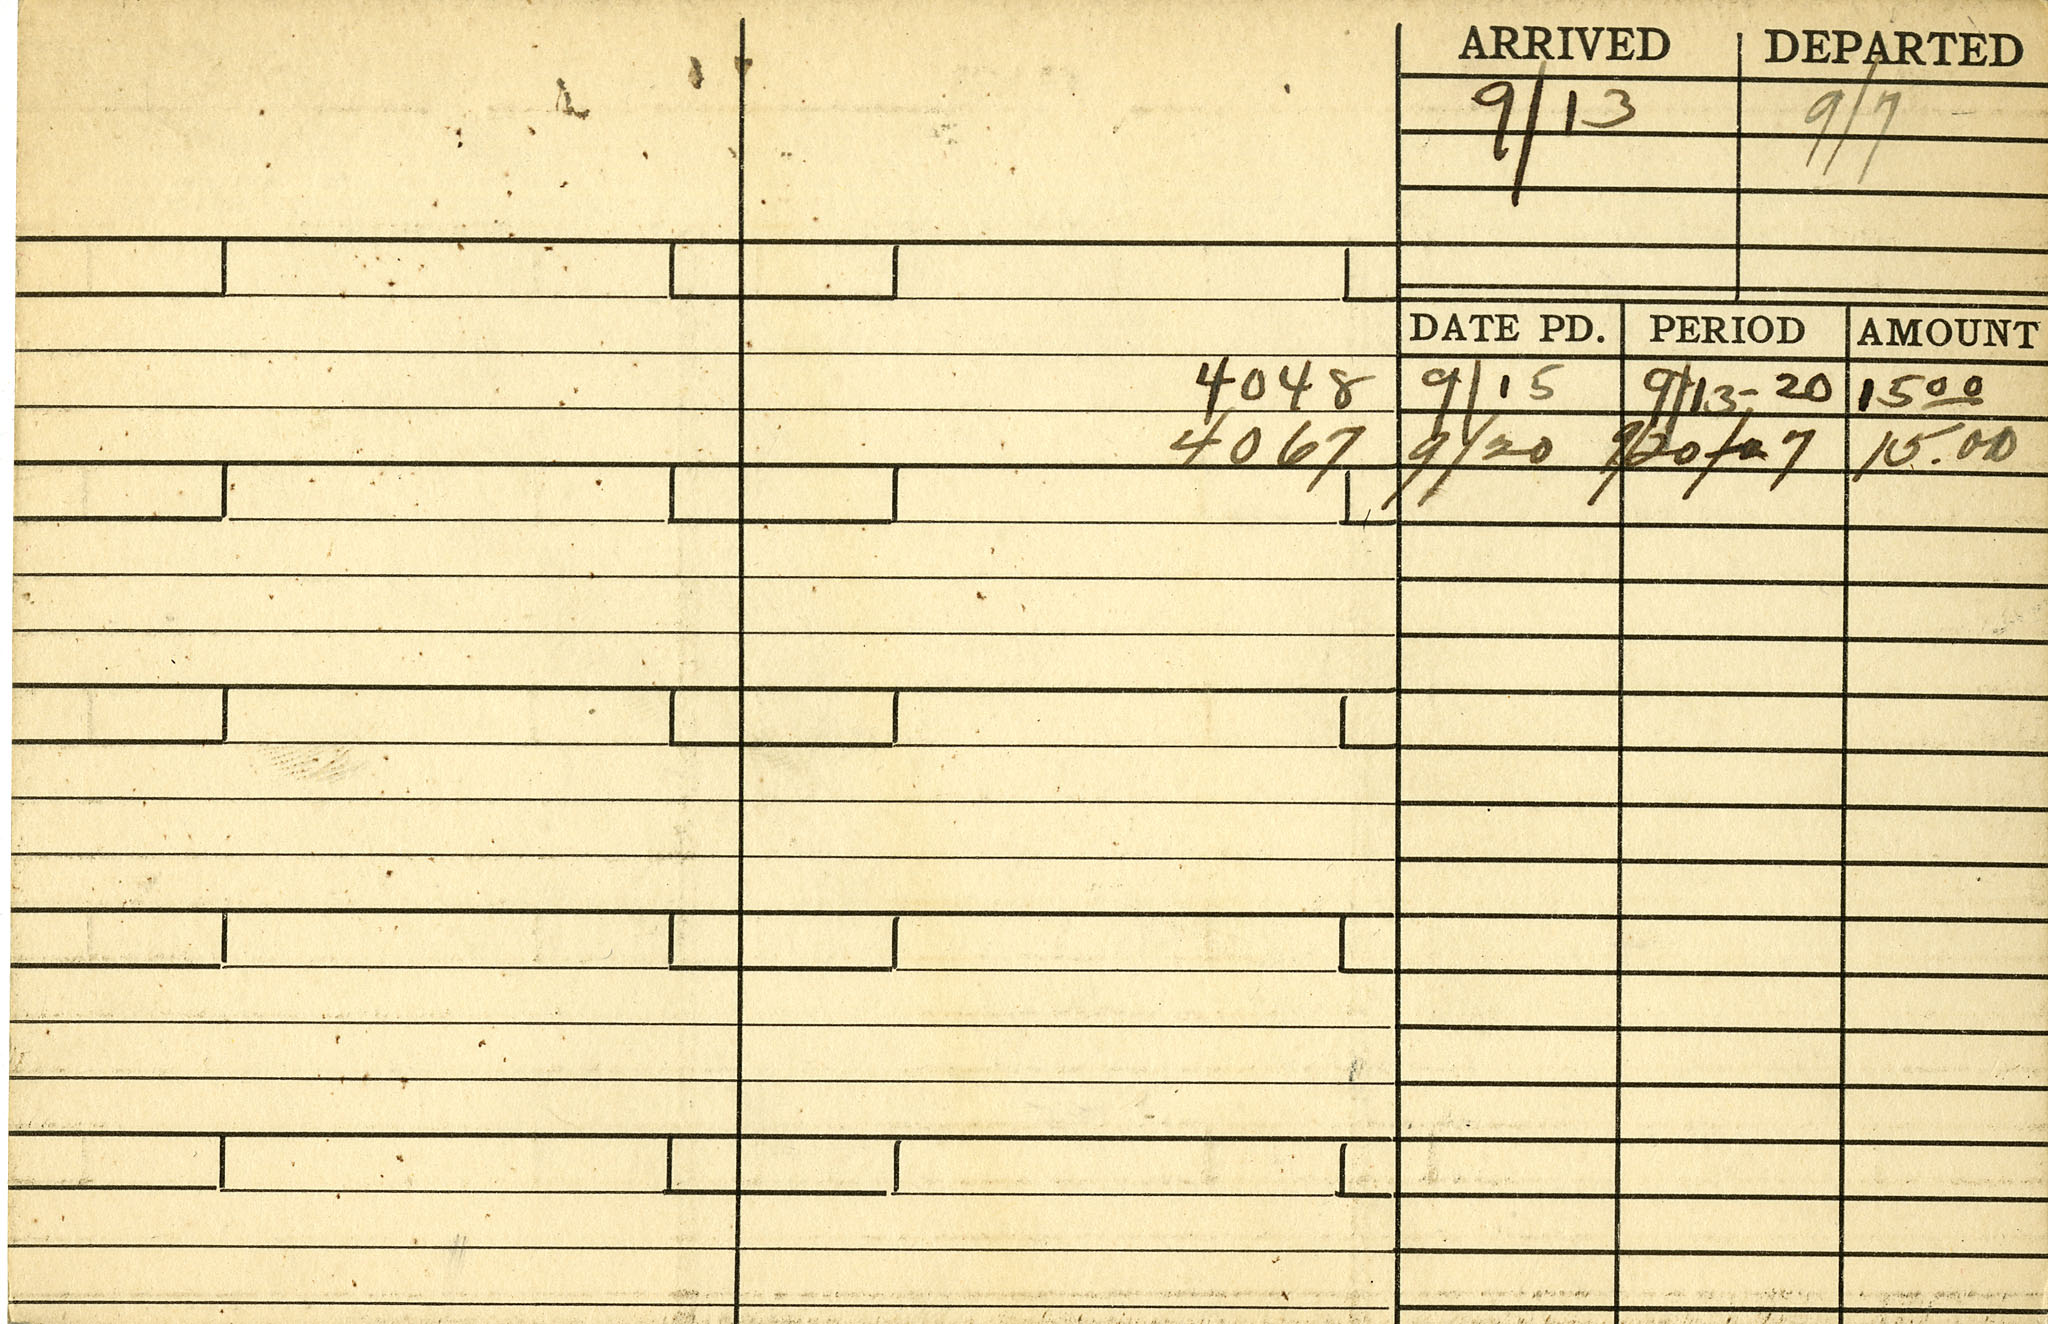 ARRIVED DEPARTED
9/13 9/7
DATE PD. PERIOD AMOUNT
4048 9/15 9/13-20 15 00
4067 9/20 9/20-27 15.00